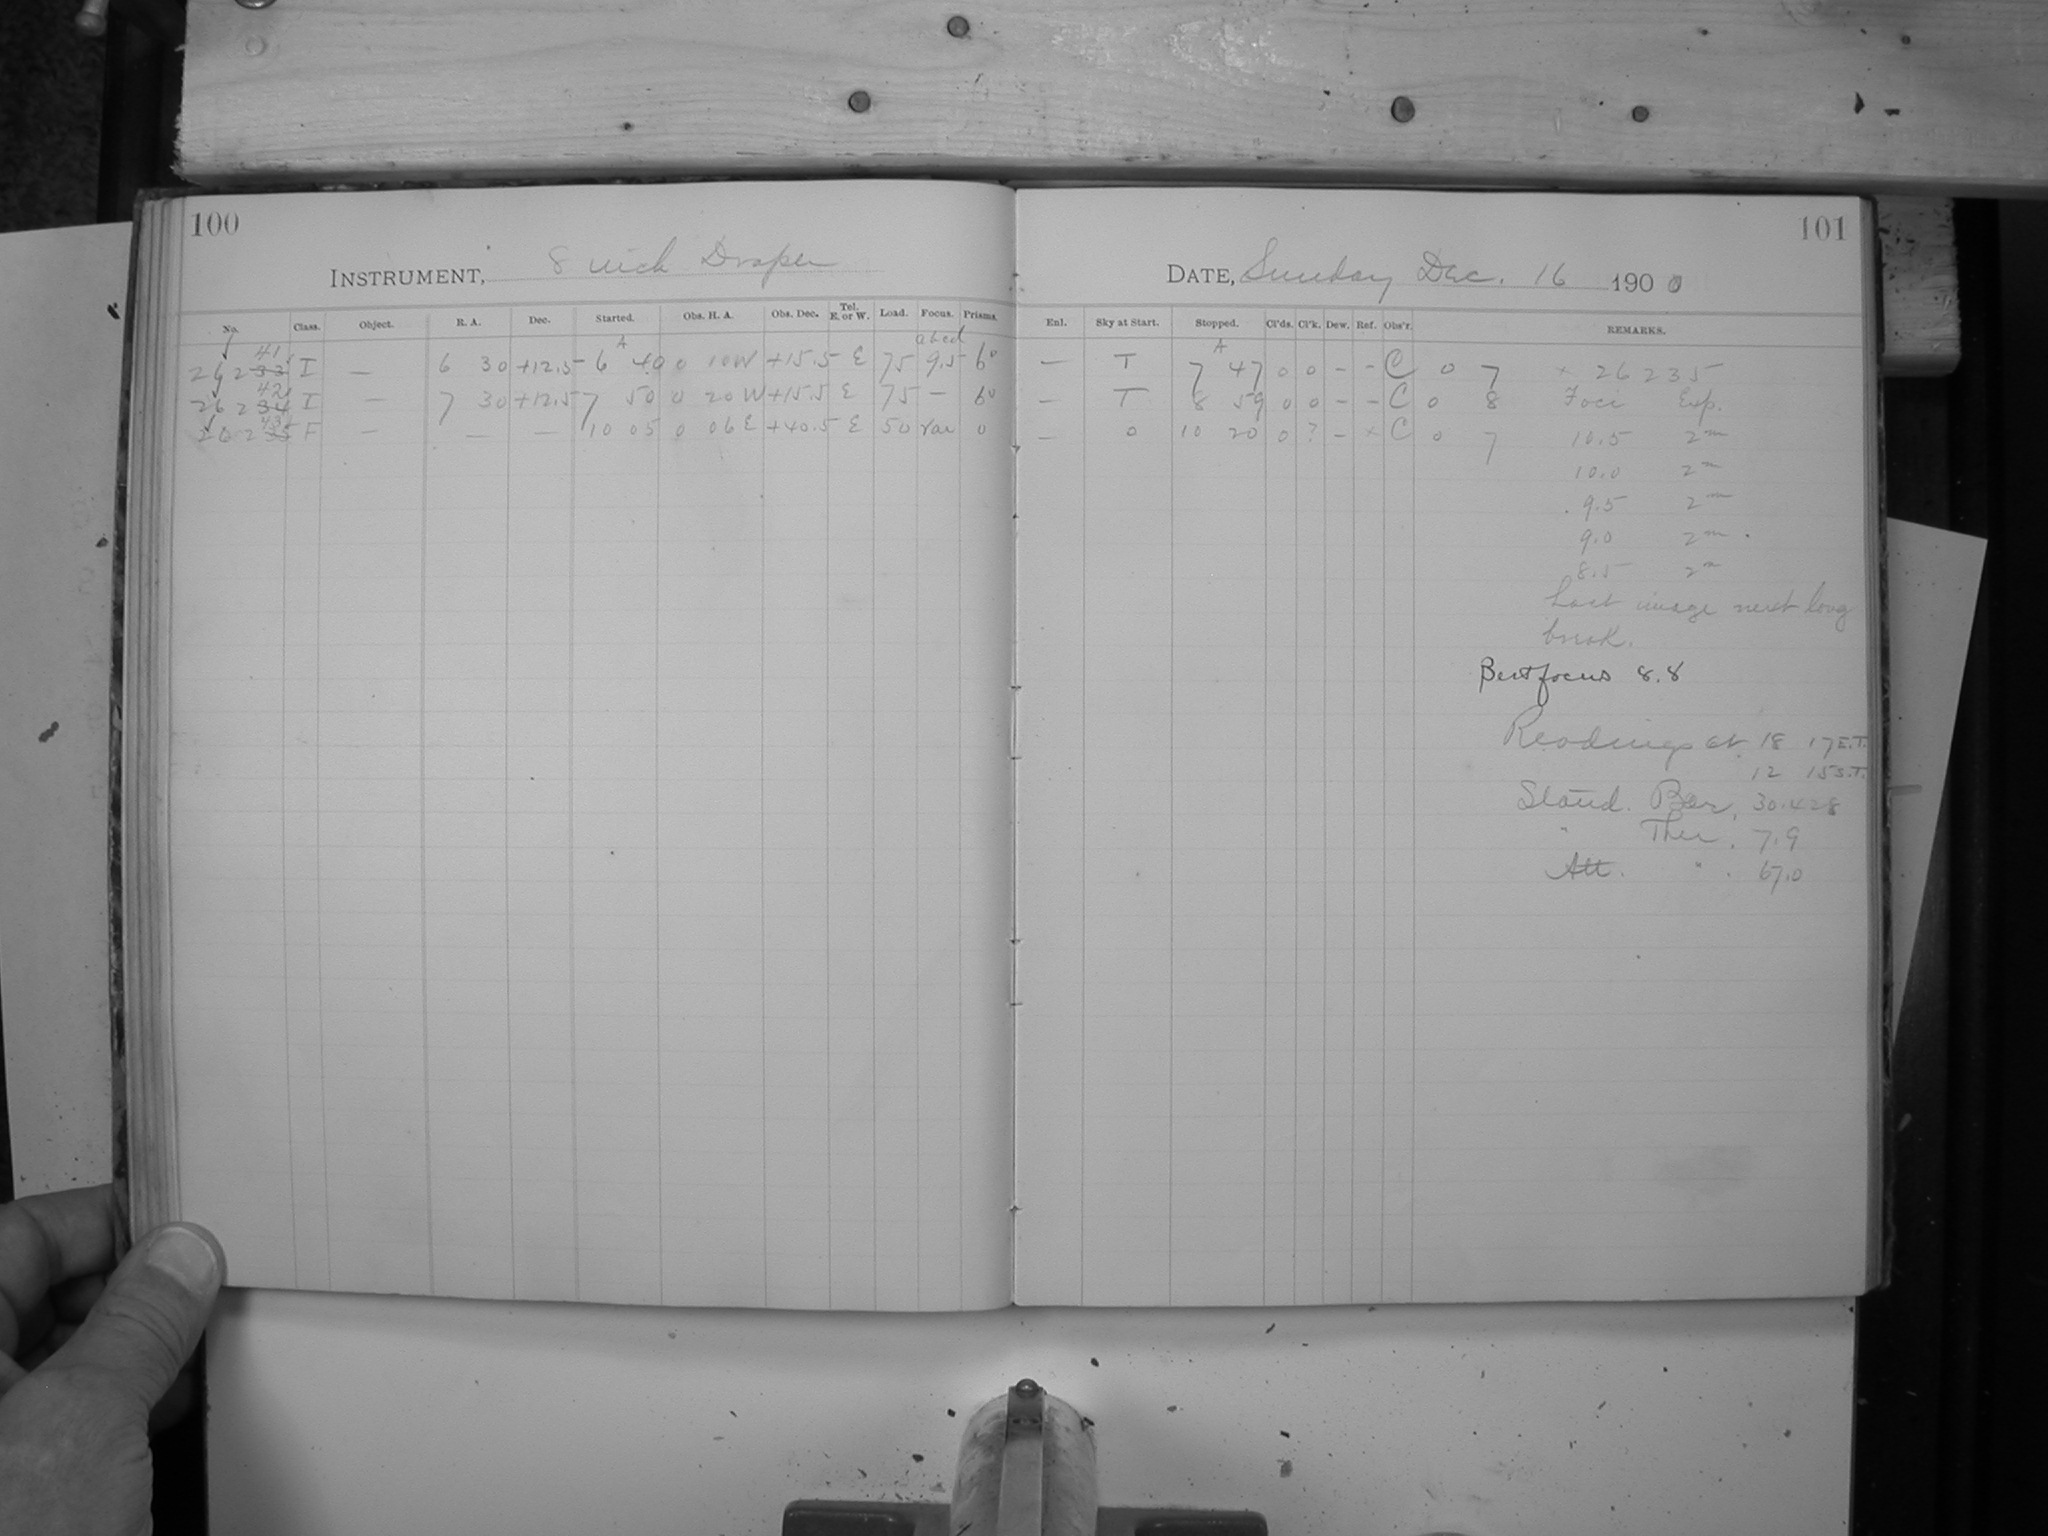 100
INSTRUMENT, 8 inch Draper
No. Class. Object. R. A. Dec. Started. Obs. H. A. Obs. Dec. Tel. E. or W. Load. Focus. Prisms.
41 A abcd
26233 I — 6 30 +12.5 6 40 0 10 W +15.5 E 75 9.5 6°
42
26234 I — 7 30 +12.5 7 50 0 20 W +15.5 E 75 — 6°
43
26235 F — — — 10 05 0 06 E +40.5 E 50 Var 0
101
DATE, Sunday Dec. 16 1900
Enl. Sky at Start. Stopped. Cl'ds. Cl'k. Dew. Ref. Obs'r. REMARKS.
A
— T 7 47 0 0 – – C 0 7 × 26235
— T 8 59 0 0 – – C 0 8 Foci Exp.
— 0 10 20 0 ? – × C 0 7 10.5 2m
10.0 2m
9.5 2m
9.0 2m
8.5 2m
Last image next long
break.
Best focus 8.8
Readings at 18 17 E.T.
12 15 S.T.
Stand. Bar. 30.428
" Ther. 7.9
Att. " . 67.0